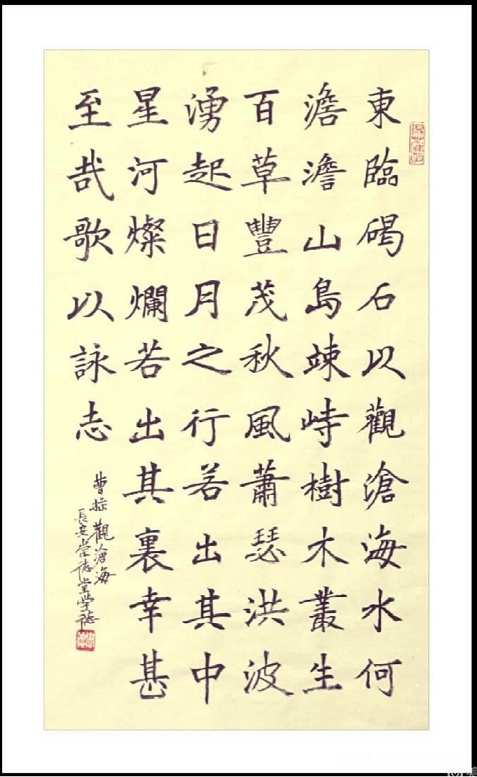 東臨碣石以觀滄海水何
澹澹山島竦峙樹木叢生
百草豐茂秋風蕭瑟洪波
湧起日月之行若出其中
星河燦爛若出其裏幸甚
至哉歌以詠志
曹操觀滄海
長安崇德堂學德